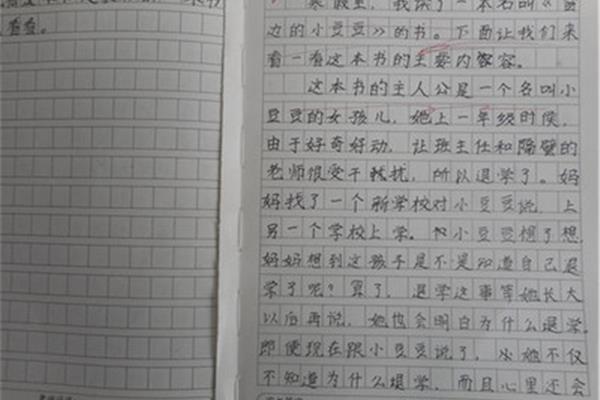 看看。
寒假里，我读了一本名叫《窗
边的小豆豆》的书。下面让我们来
看一看这本书的主要内容。
这本书的主人公是一个名叫小
豆豆的女孩儿，她上一年级时候，
由于好奇好动，让班主任和隔壁的
老师很受干扰，所以退学了。妈
妈找了一个新学校对小豆豆说，上
另一个学校上学。小豆豆想了想，
妈妈想到这孩子是不是知道自己退
学了呢？算了，退学这事等她长大
以后再说，她也会明白为什么退学。
即使现在跟小豆豆说了，她不仅
不知道为什么退学，而且心里还会